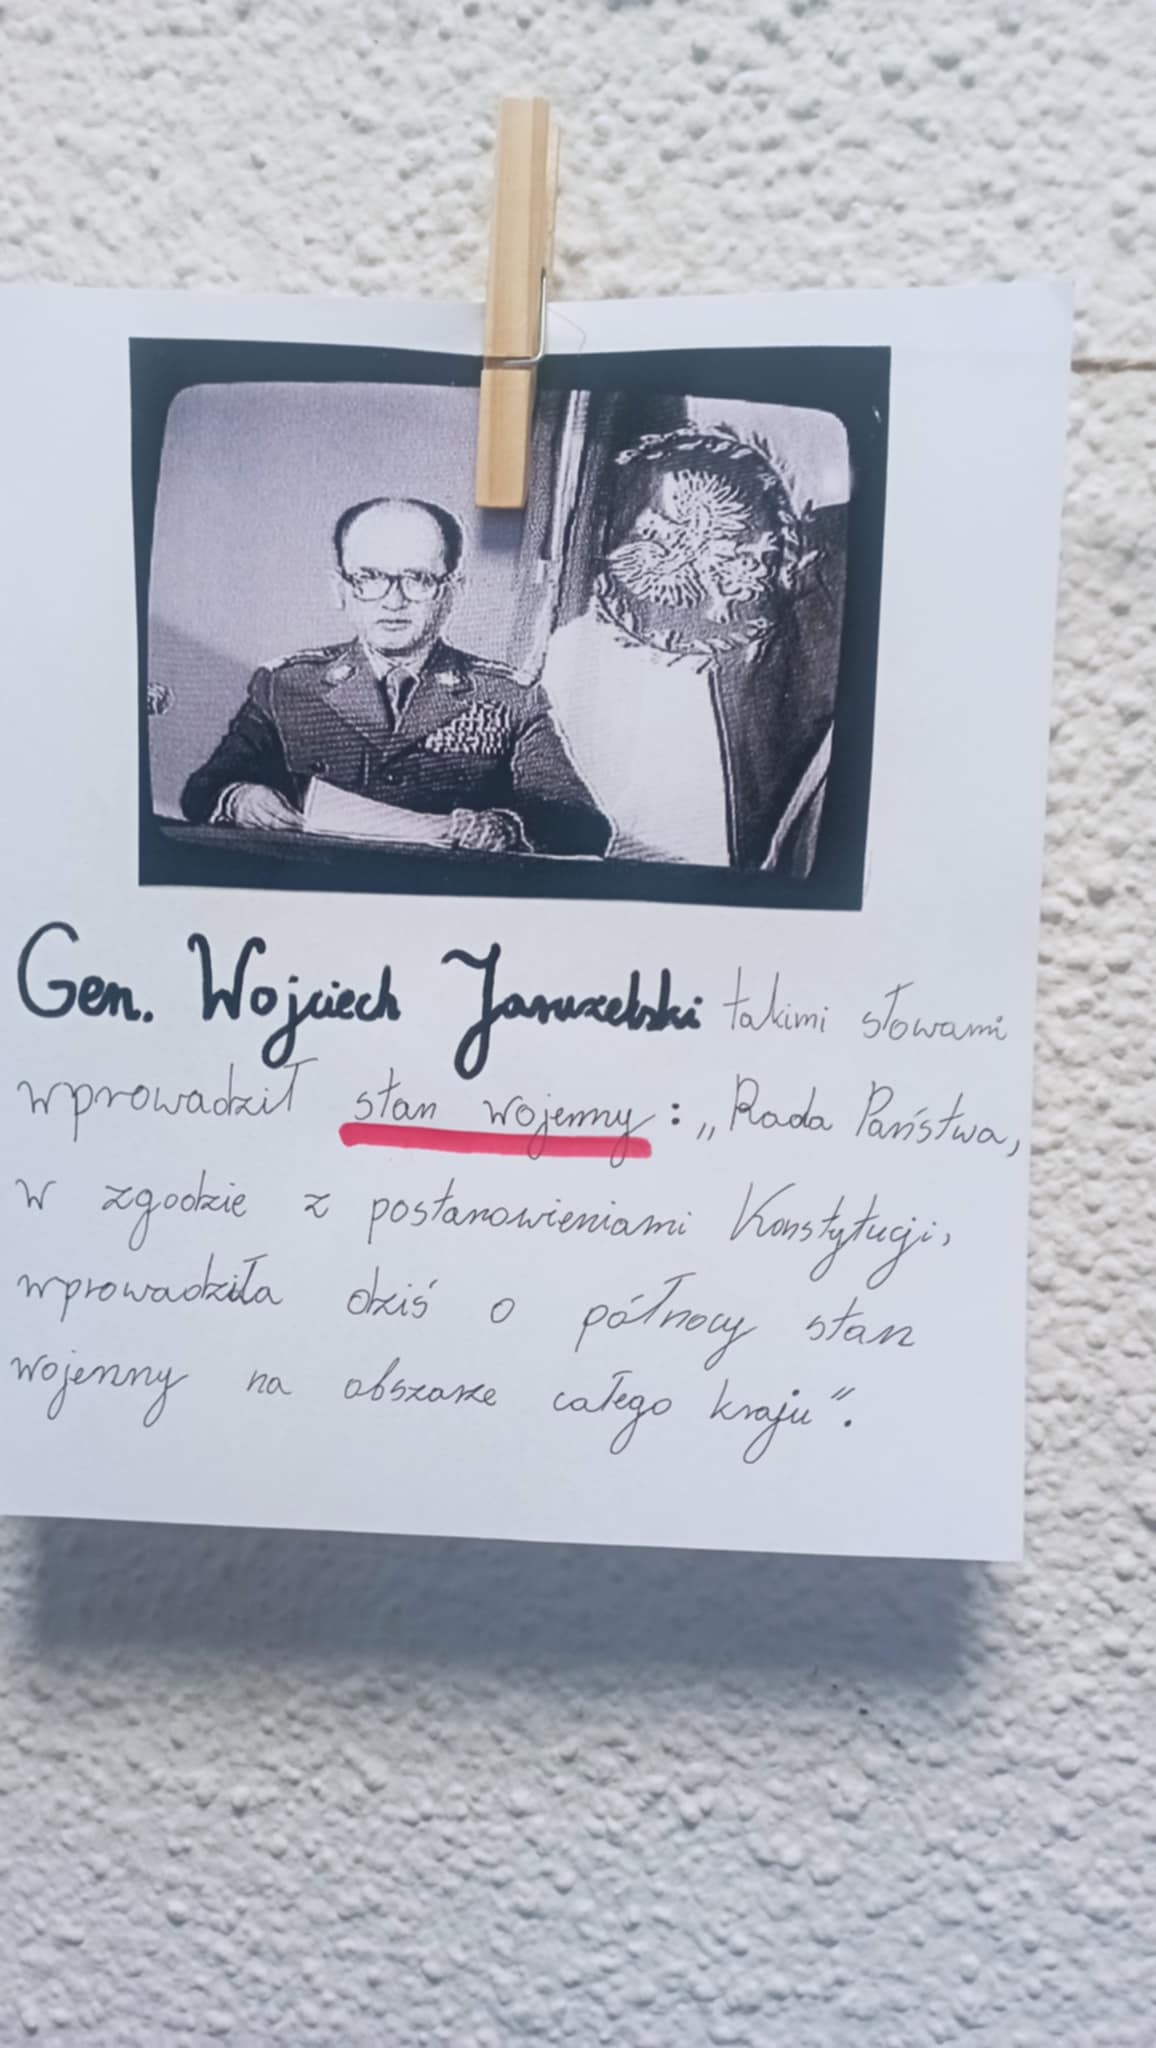 Gen. Wojciech Jaruzelski takimi słowami
wprowadził stan wojenny: „Rada Państwa,
w zgodzie z postanowieniami Konstytucji,
wprowadziła dziś o północy stan
wojenny na obszarze całego kraju”.